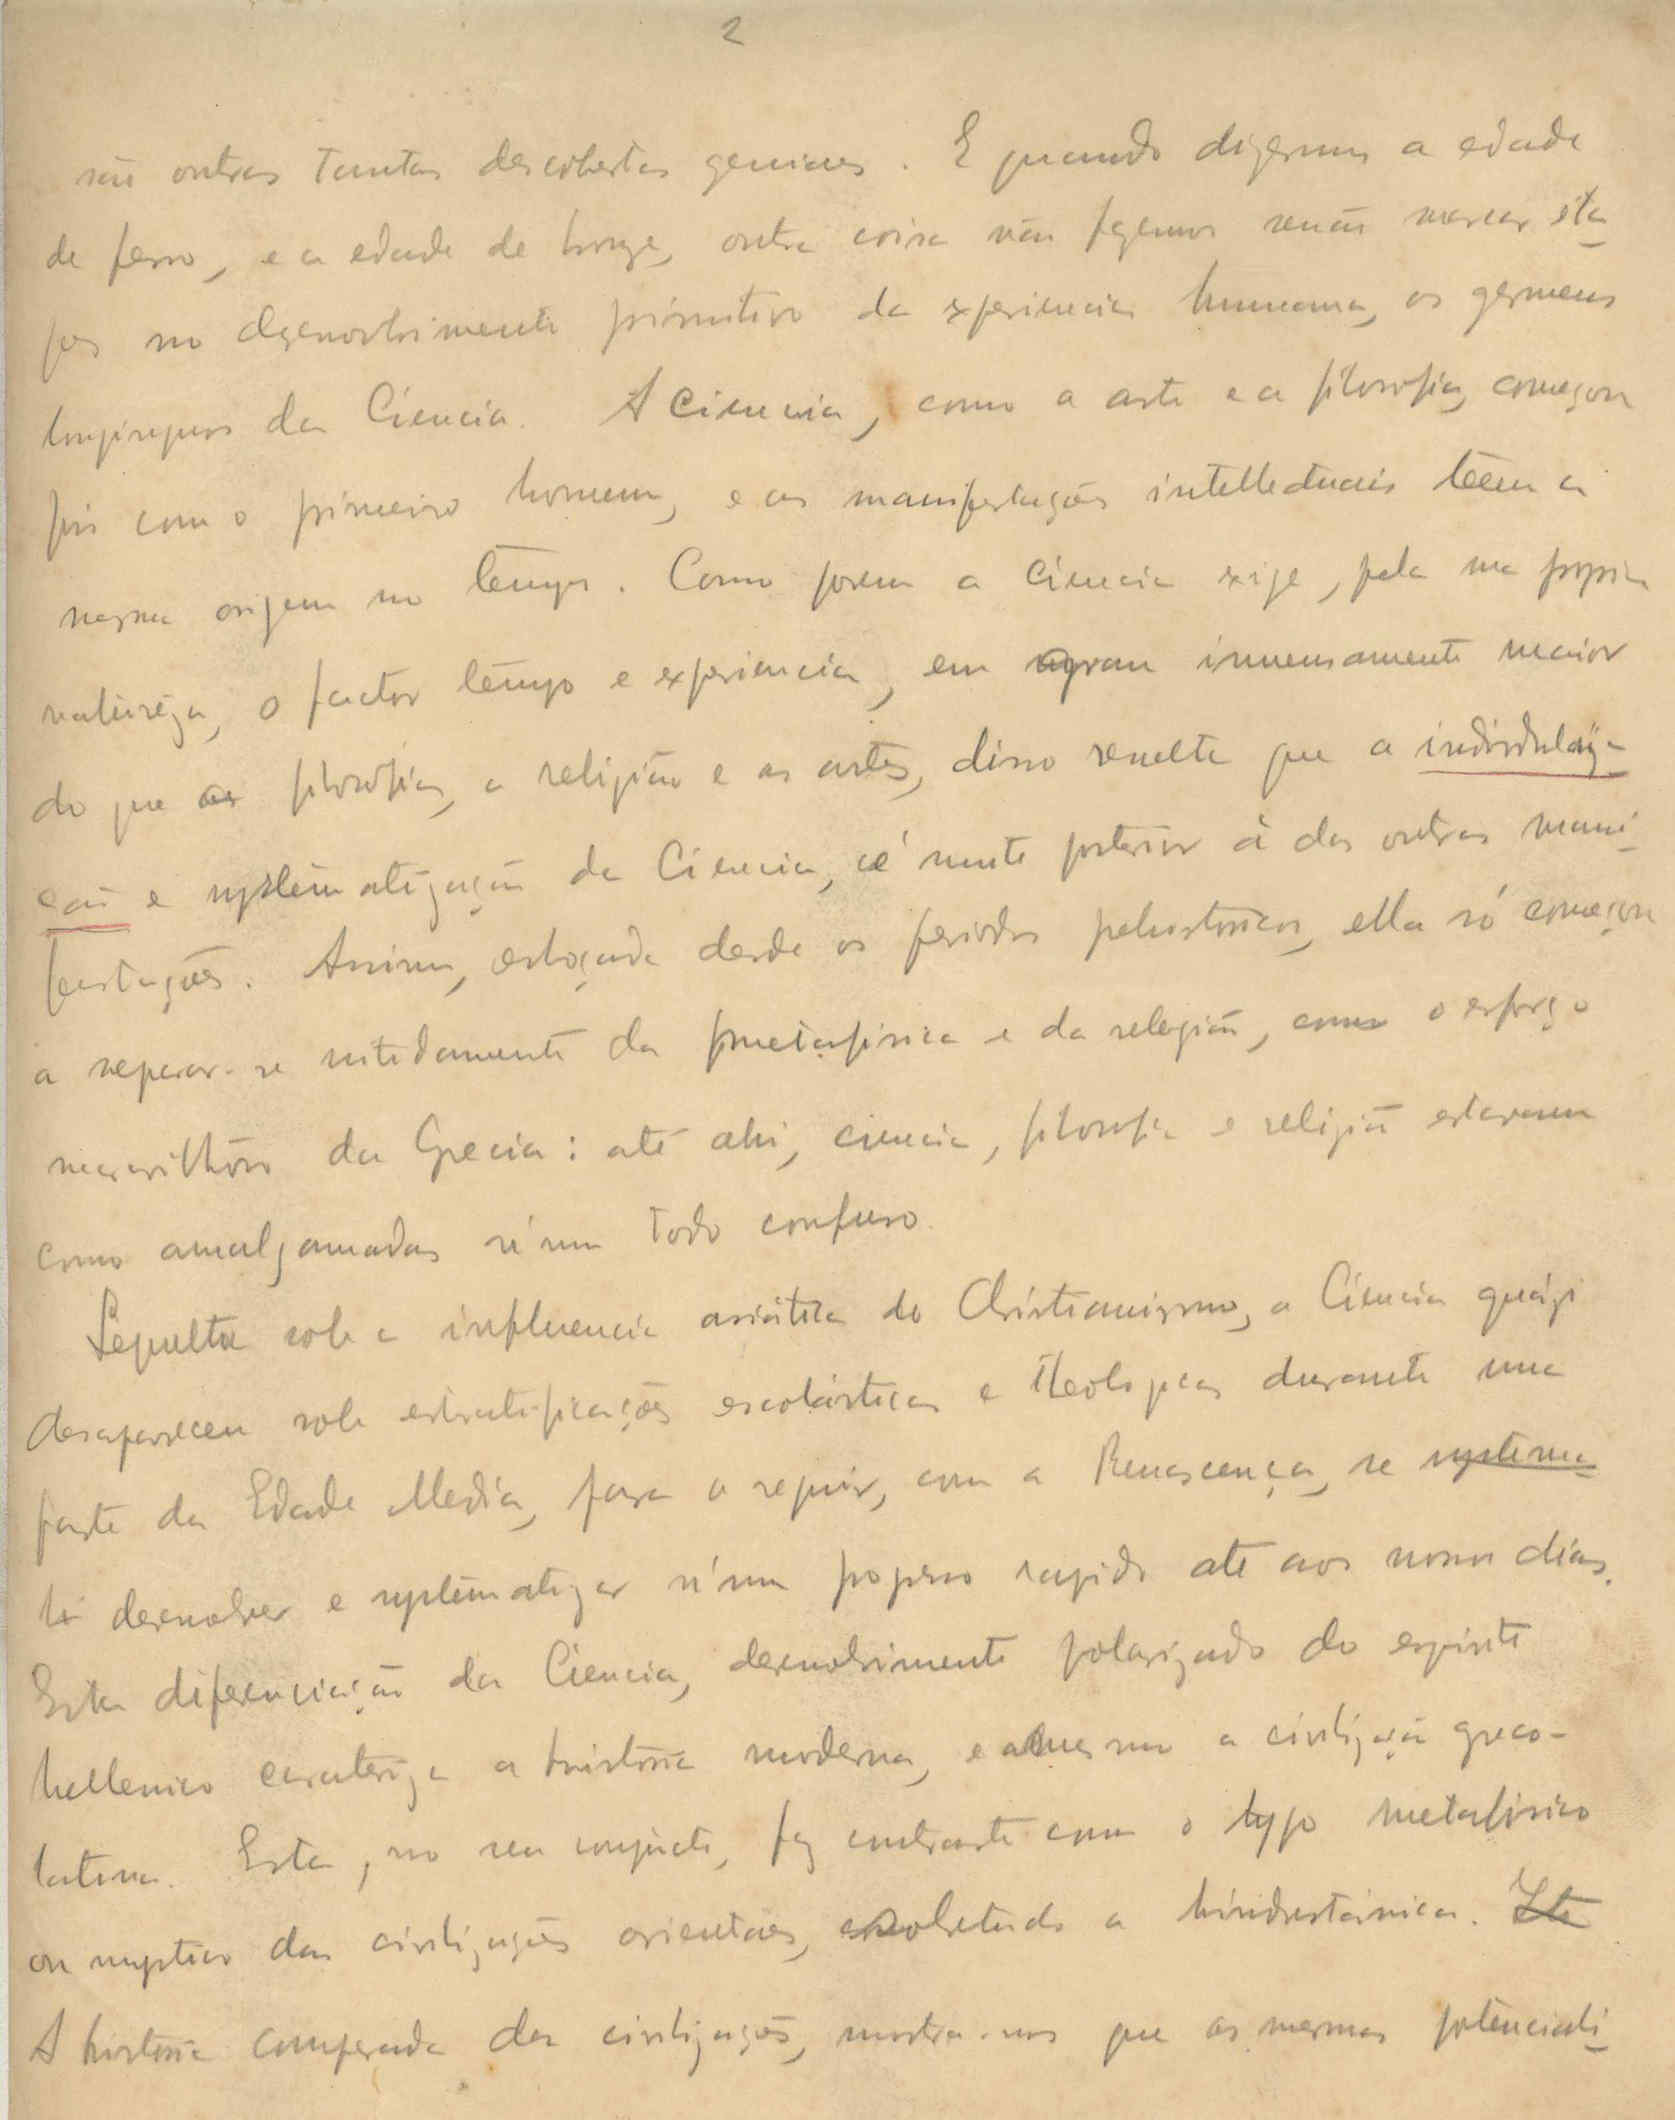 2
são outras tantas descobertas geniaes. E quando dizemos a edade
de ferro, e a edade de bronze, outra coisa não fazemos senão marcar eta-
pas no desenvolvimento primitivo da experiencia humana, os germens
longinquos da Ciencia. A Ciencia, como a arte e a filosofia, começou
pois com o primeiro homem, e as manifestações intellectuais têem a
mesma origem no tempo. Como porem a Ciencia exige, pela sua propria
natureza, o factor tempo e experiencia, em grau immensamente maior
do que a filosofia, a religião e as artes, disso resulta que a individuliza-
ção e systematização da Ciencia, é muito posterior á das outras mani-
festações. Assim, esboçada desde os periodos prehistoricos, ella só começou
a separar-se nitidamente da metafisica e da religião, com o esforço
maravilhoso da Grecia: até ahi, ciencia, filosofia e religião estavam
como amalgamadas n'um todo confuso.
Sepulta sob a influencia asiática do Christianismo, a Ciencia quázi
desapareceu sob estratificações escolásticas e theologicas durante uma
parte da Edade Media, para a seguir, com a Renascença, se systema-
ti desenvolver e systematizar n'um progresso rapido até aos nossos dias.
Esta diferenciação da Ciencia, desenvolvimento polarizado do espirito
hellenico carateriza a historia moderna, e mesmo a civilização greco-
latina. Esta, no seu conjucto, faz contraste com o typo metafisico
ou mystico das civilizações orientaes, sobretudo a hindustánica. Esta
A historia comparada das civilizações, mostra-nos que as mesmas potenciali-